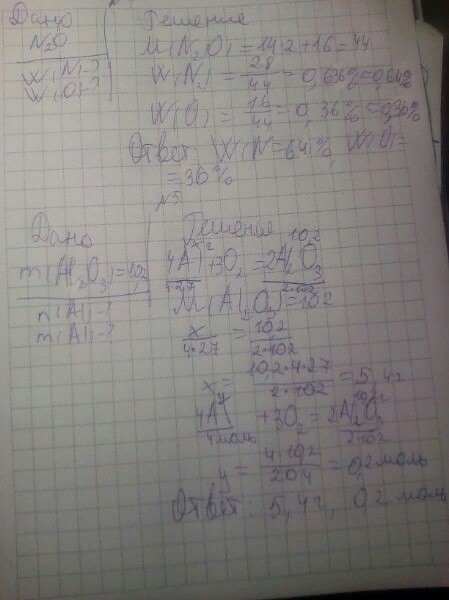 Дано
N₂O
W(N)-?
W(O)-?
Решение
M(N₂O)=14·2+16=44
W(N)=28/44=0,636%=0,64%
W(O)=16/44=0,36%=0,36%
Ответ: W(N)=64%, W(O)=
=36%
№5
Дано
m(Al₂O₃)=10,2
n(Al)-?
m(Al)-?
Решение
x 10,2
4Al+3O₂=2Al₂O₃
4·27 2·102
M(Al₂O₃)=102
x/4·27=10,2/2·102
x=10,2·4·27/2·102=5,4г
y 10,2
4Al+3O₂=2Al₂O₃
4моль 2·102
y=4·10,2/204=0,2моль
Ответ: 5,4г, 0,2 моль